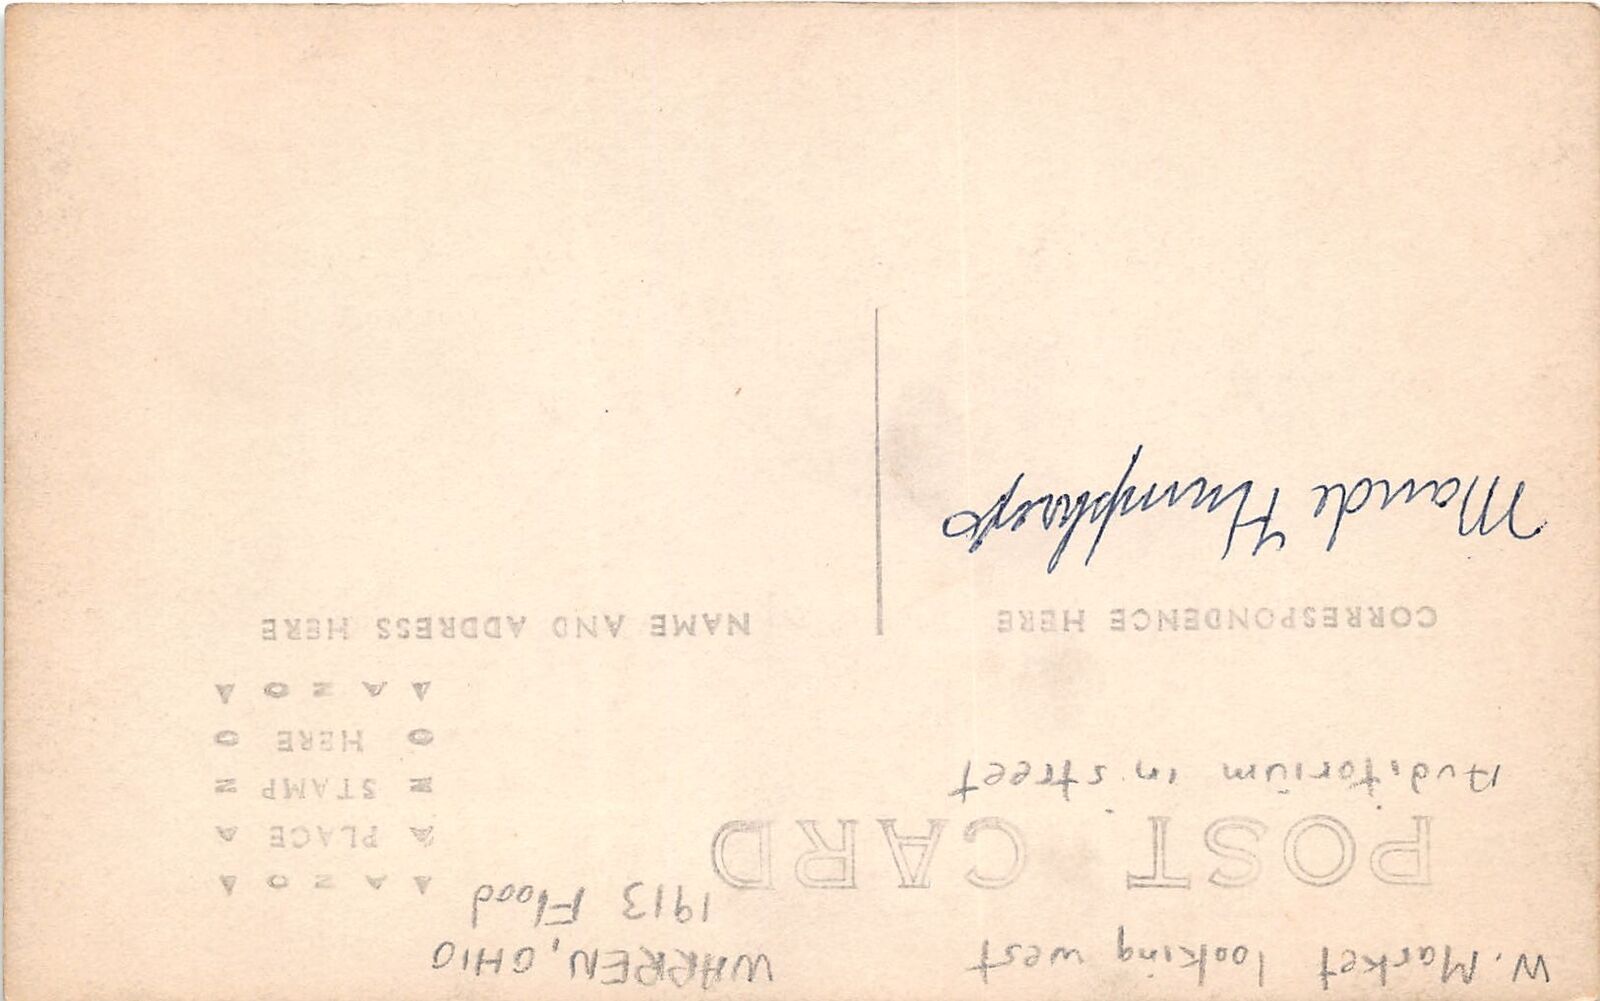 W. Market looking west
WARREN, OHIO
1913 Flood
POST CARD
Auditorium in street
AZOA
A PLACE A
Z STAMP Z
O HERE O
AZOA
CORRESPONDENCE HERE
NAME AND ADDRESS HERE
Maude Humphreys